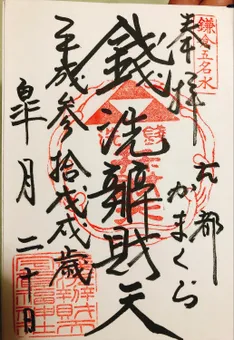 鎌倉五名水
奉拝
古都
かまくら
銭洗辯財天
平成参拾戊戌歳
皐月二十日